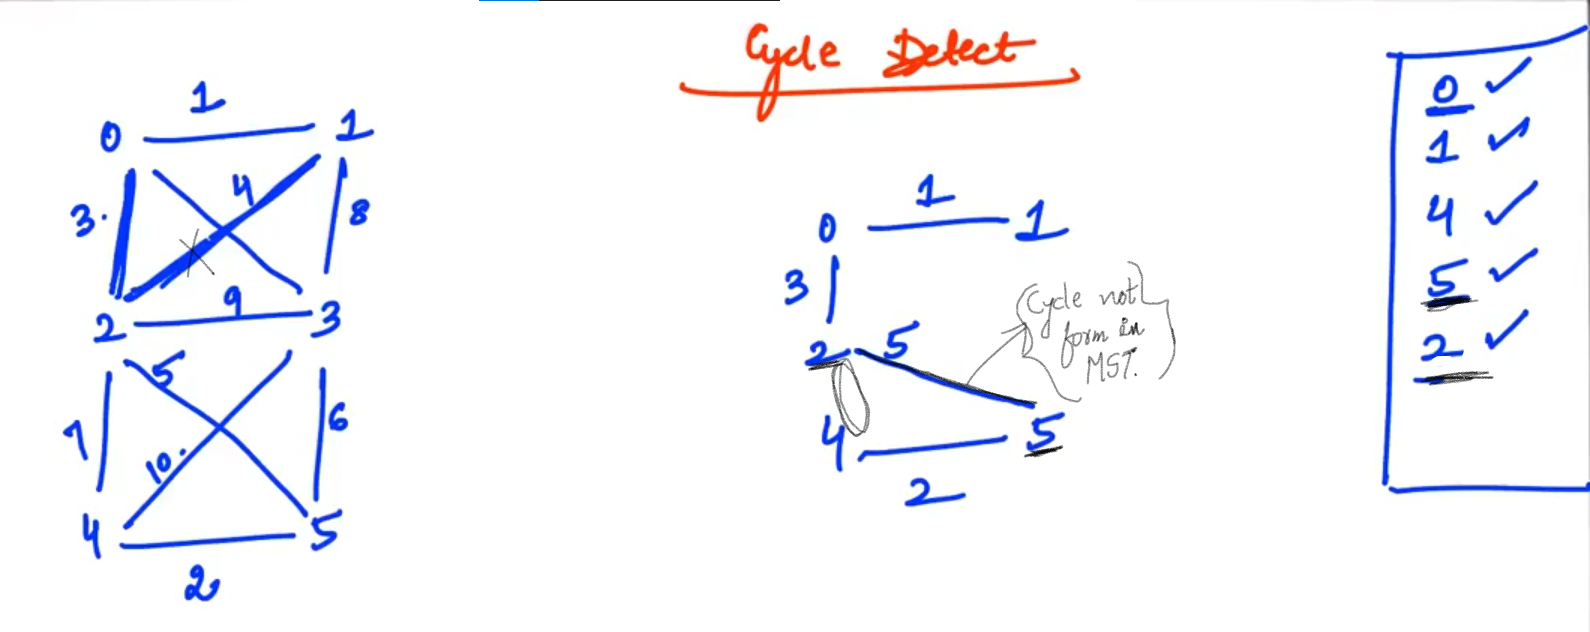 Cycle Detect
1
0 1
3. 4 8
9
2 3
5
7 6
10.
4 5
2
1
0 1
3
2 5
4 5
2
{Cycle not
form in
MST.}
0 ✓
1 ✓
4 ✓
5 ✓
2 ✓